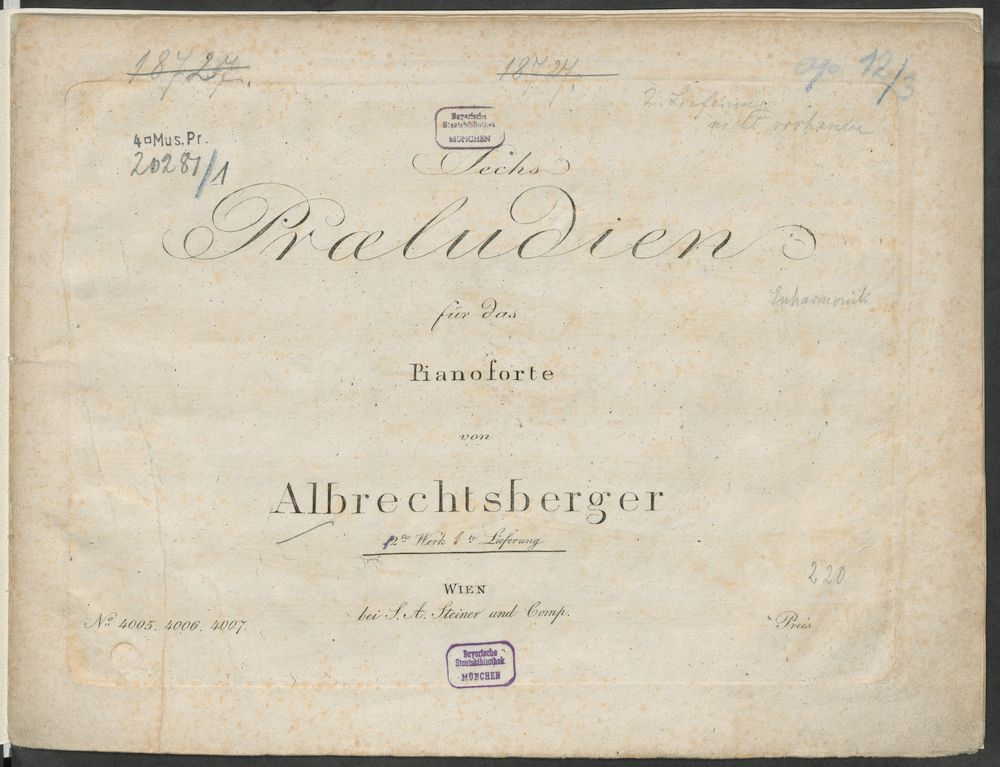 18727.
1872
op. 12/3
2. Lieferung
nicht vorhanden
Bayerische
Staatsbibliothek
MÜNCHEN
4□Mus.Pr.
20281/1
Sechs
Præludien
Enharmonik
für das
Pianoforte
von
Albrechtsberger
12tes Werk 1te Lieferung
220
WIEN
bei S. A. Steiner und Comp.
No 4005. 4006. 4007.
Preis
Bayerische
Staatsbibliothek
MÜNCHEN